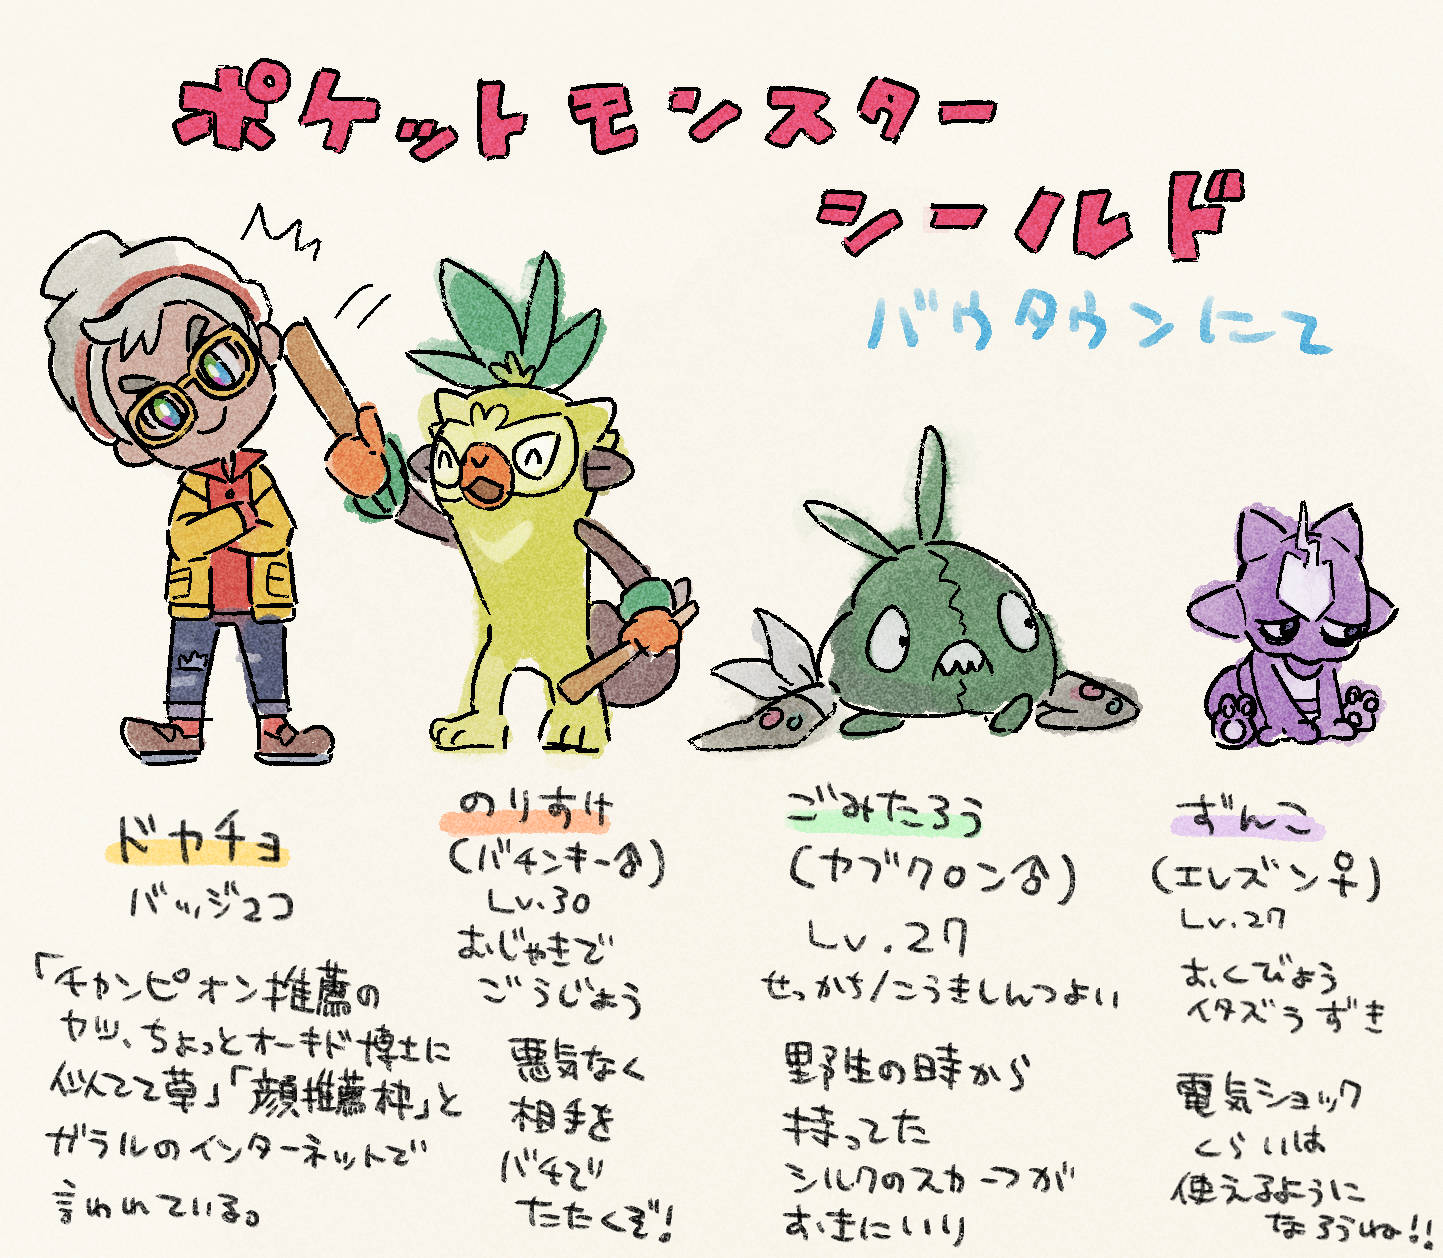 ポケットモンスター
シールド
バウタウンにて
ドヤチョ
バッジ2コ
「チャンピオン推薦の
ヤツ、ちょっとオーキド博士に
似んてて草」「顔推薦枠」と
ガラルのインターネットで
言われている。
のりすけ
(バチンキー♂)
Lv.30
むじゃきで
ごうじょう
悪気なく
相手を
バチで
たたくぞ!
ごみたろう
(ヤブクロン♂)
Lv.27
せっかち/こうきしんつよい
野生の時から
持ってた
シルクのスカーフが
お きにいり
ずんこ
(エレズン♀)
Lv.27
おくびょう
イタズラずき
電気ショック
くらいは
使えるように
なろうね!!